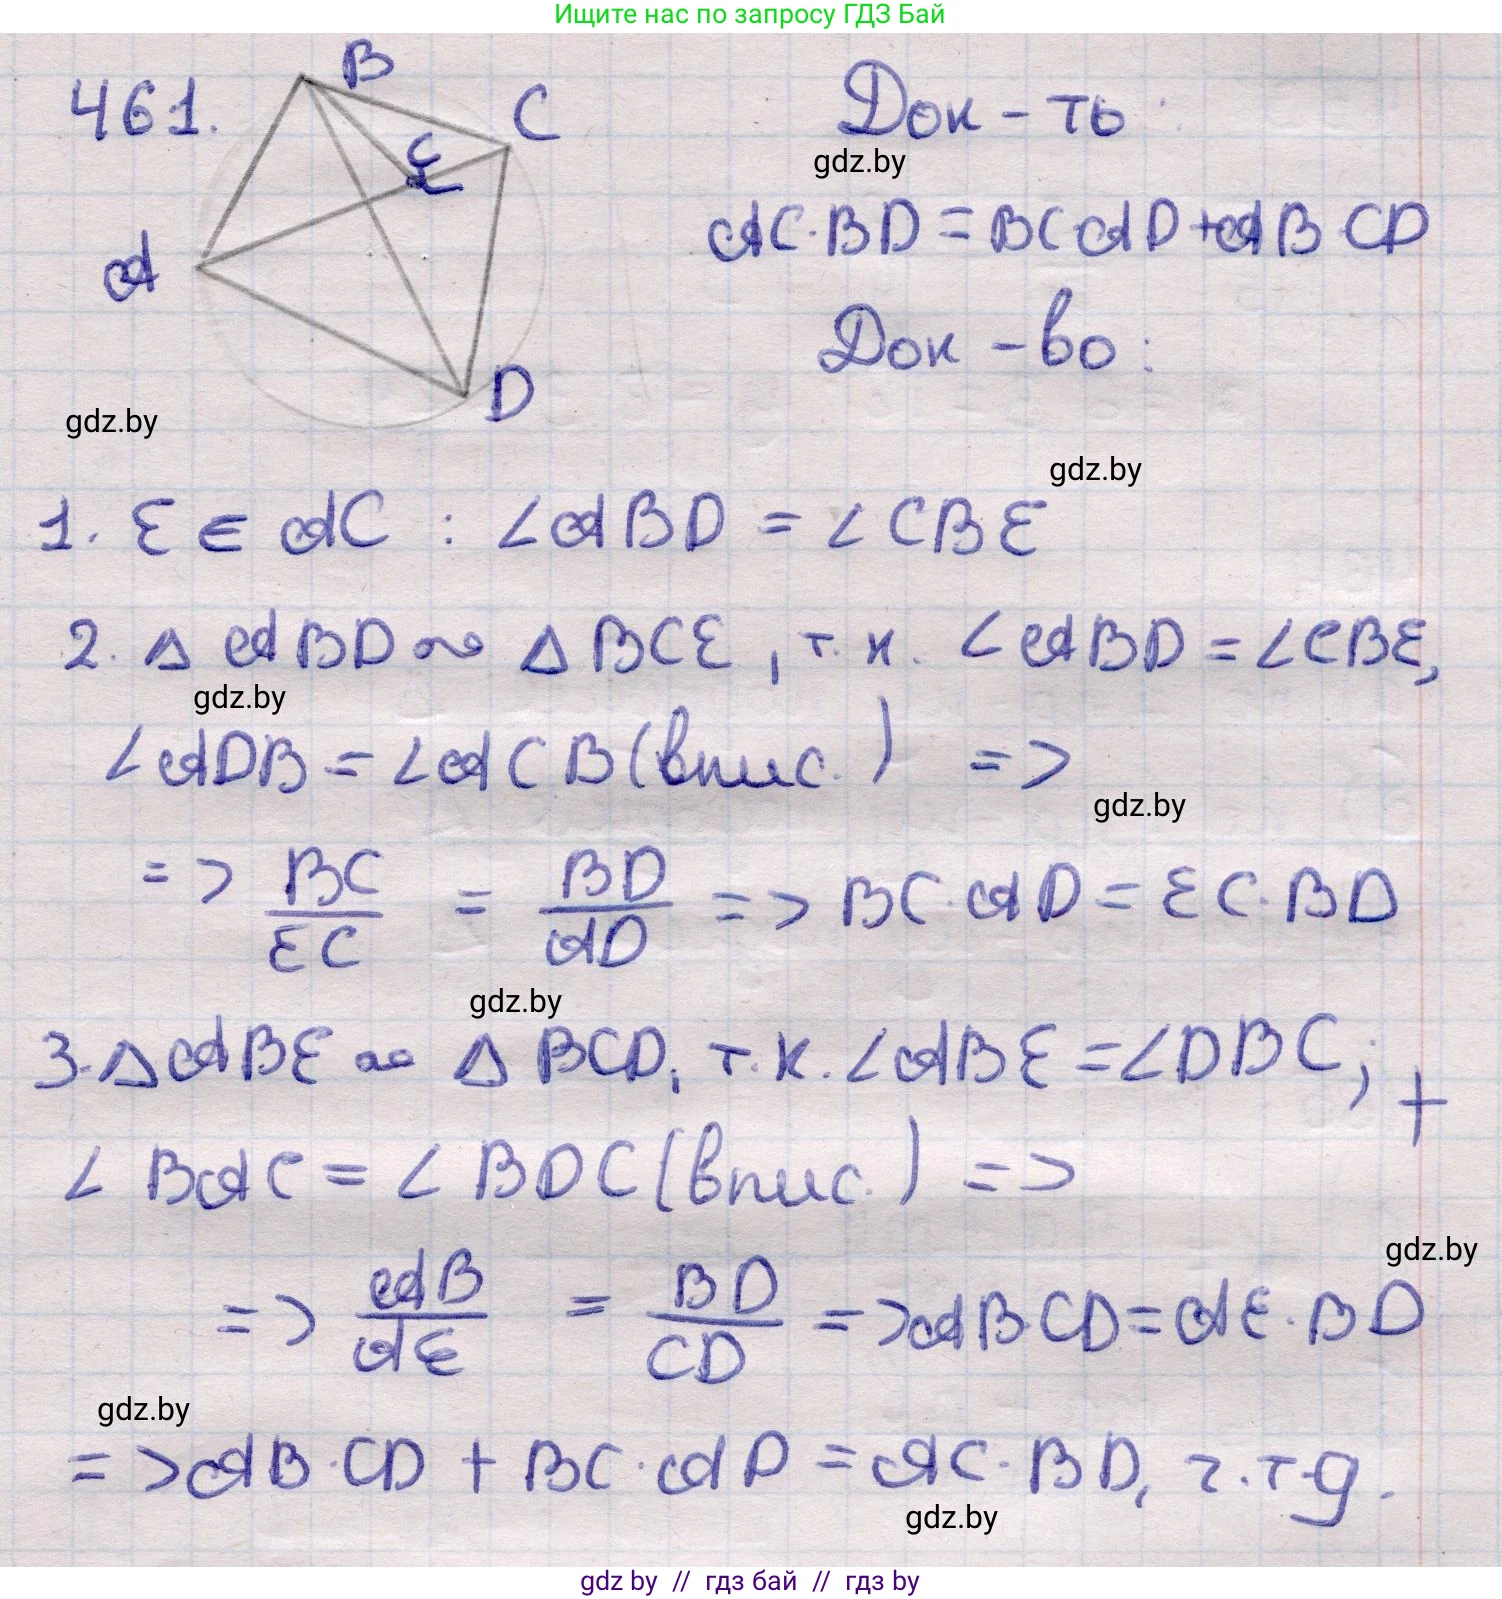 Ищите нас по запросу ГДЗ Бай
461.
B
C
E
A
D
Док-ть:
gdz.by
AC·BD = BC·AD + AB·CD
Док-во:
gdz.by
gdz.by
1. E ∈ AC : ∠ABD = ∠CBE
2. △ABD ∾ △BCE, т.к. ∠ABD = ∠CBE,
gdz.by
∠ADB = ∠ACB (впис.) =>
gdz.by
=> BC/EC = BD/AD => BC·AD = EC·BD
gdz.by
3. △ABE ∾ △BCD, т.к. ∠ABE = ∠DBC; +
∠BAC = ∠BDC (впис.) =>
gdz.by
=> AB/AE = BD/CD => AB·CD = AE·BD
gdz.by
=> AB·CD + BC·AD = AC·BD, ч.т.д.
gdz.by
gdz by // гдз бай // гдз by